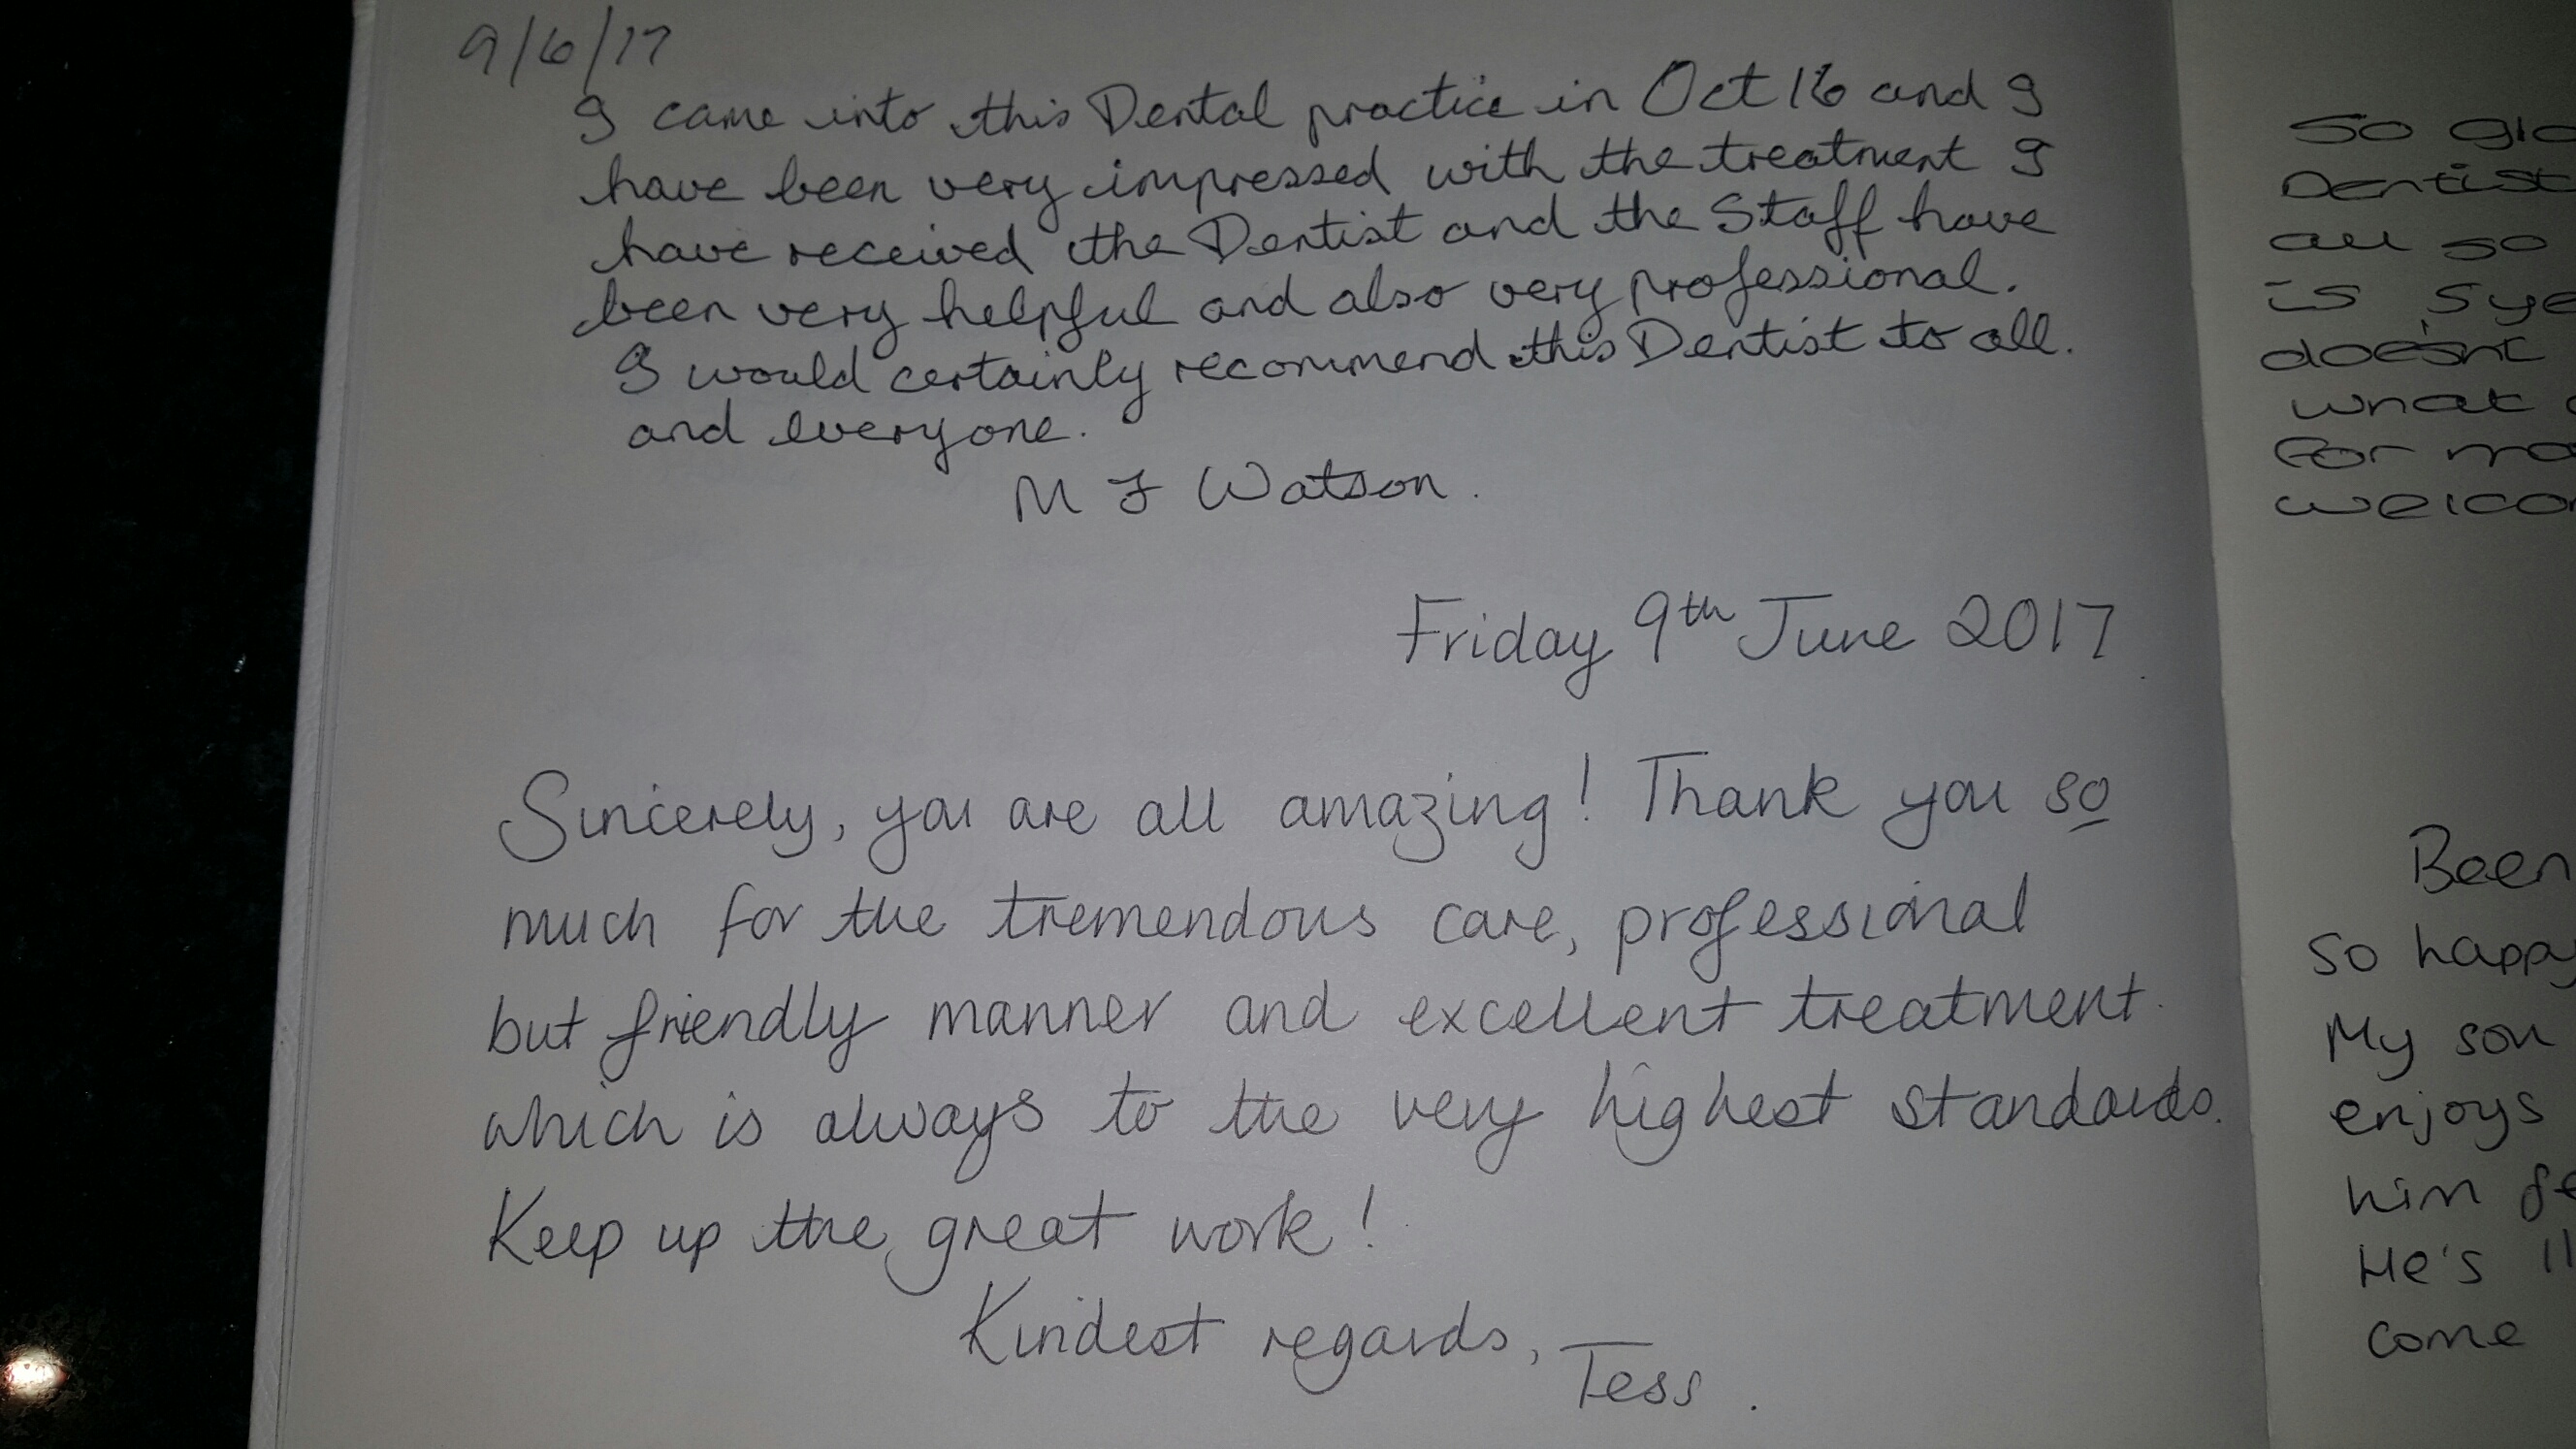 9/6/17
I came into this Dental practice in Oct 16 and I
have been very impressed with the treatment I
have received the Dentist and the Staff have
been very helpful and also very professional.
I would certainly recommend this Dentist to all.
and everyone.
M F Watson.
Friday 9th June 2017
Sincerely, you are all amazing! Thank you so
much for the tremendous care, professional
but friendly manner and excellent treatment
which is always to the very highest standards.
Keep up the great work!
Kindest regards,
Tess.
So
Dentist
all so
is
doesn't
what
For
Been
So happy
My son
enjoys
him
He's
come